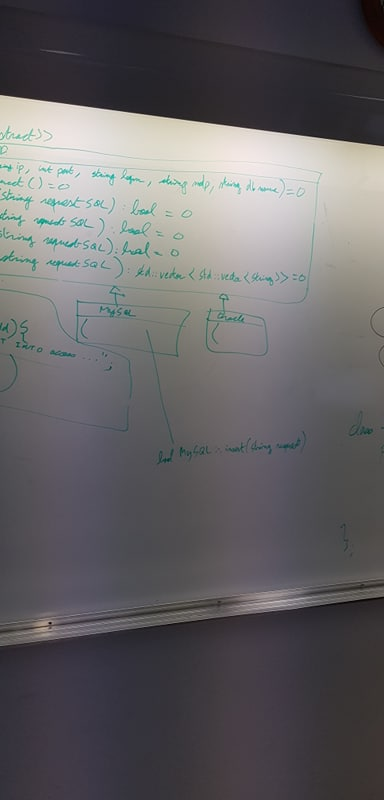 stract>>
ip, int port, string login, string mdp, string db name) = 0
nect () = 0
(string request SQL) : bool = 0
string request SQL) : bool = 0
(string request SQL) : bool = 0
string request SQL) : std::vector <std::vector <string>> = 0
MySQL
Oracle
(
(
d) {
INTO access ....";
bool MySQL :: insert (string request)
class
};